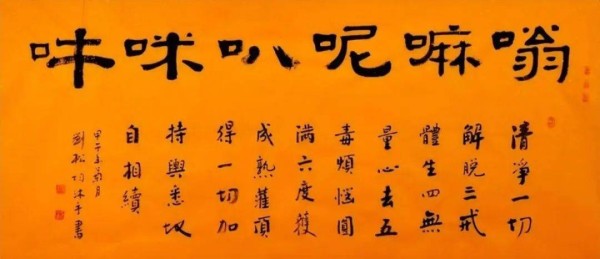 嗡嘛呢叭咪吽
清淨一切
解脱三戒
體生四無
量心去五
毒煩惱圓
满六度獲
成熟灌頂
得一切加
持與悉地
自相續
甲午年月
劉松沐手書